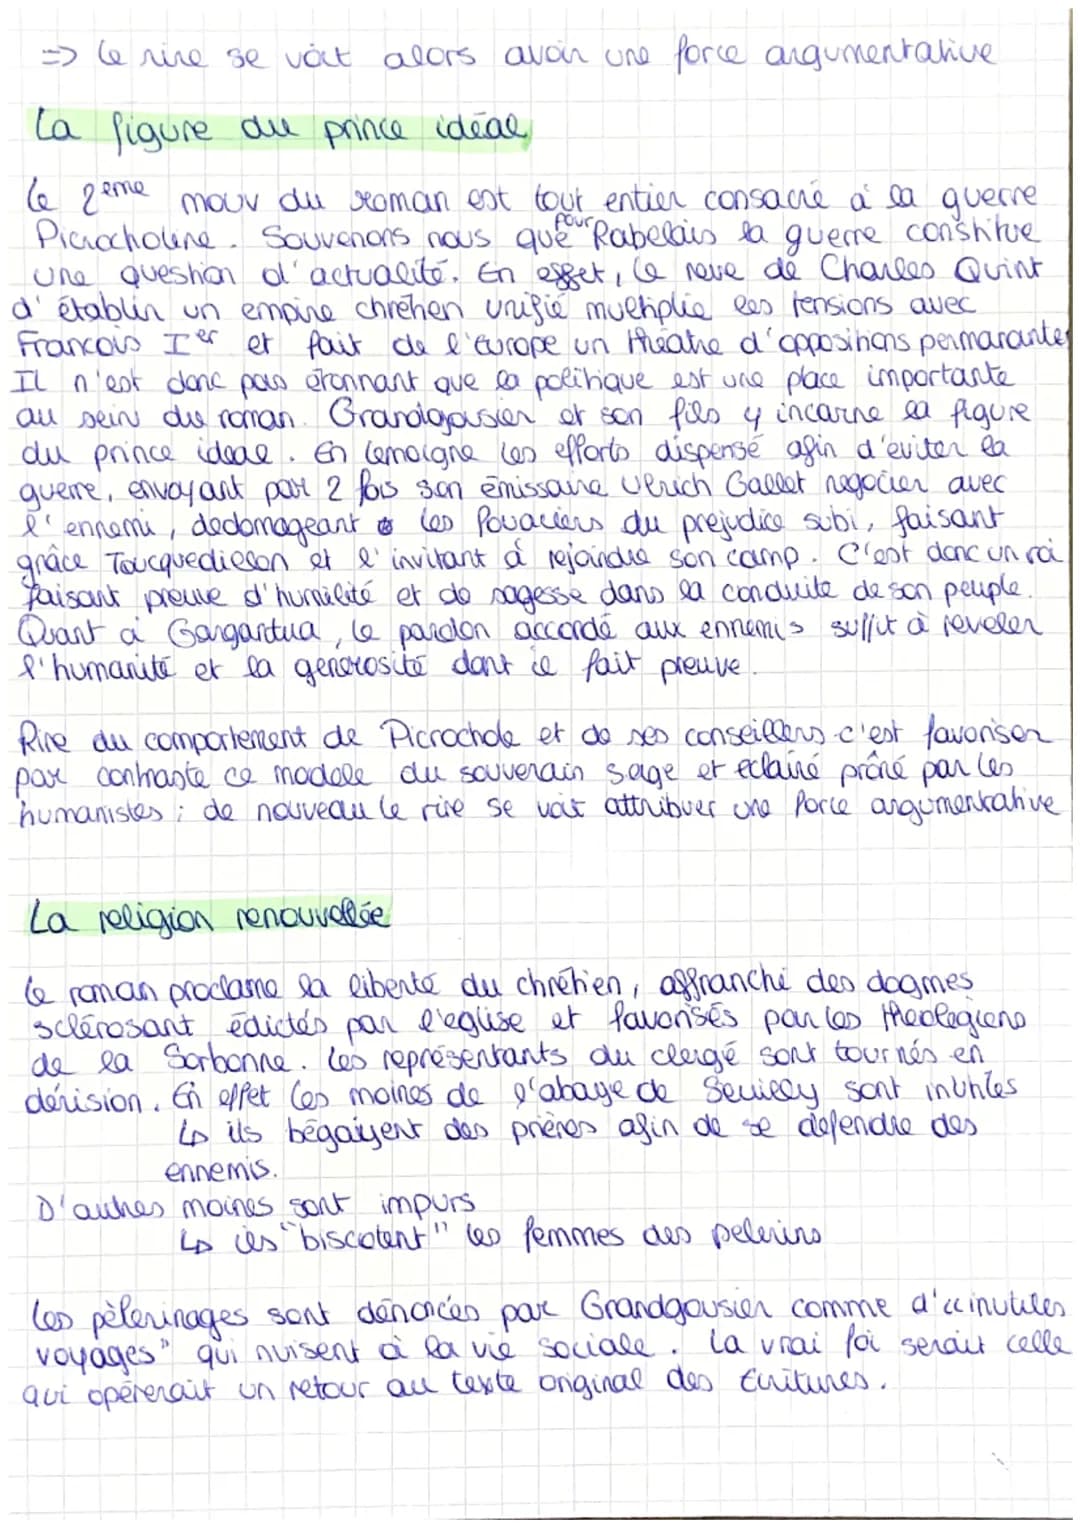 => Le rire se voit alors avoir une force argumentative
La figure du prince idéal
Le 2eme mouv du roman est tout entier consacré à la guerre
Picrocholine. Souvenons nous que pour Rabelais la guerre constitue
une question d'actualité. En effet, le reve de Charles Quint
d'établir un empire chrétien unifié multiplie les tensions avec
Francois Ier et fait de l'Europe un théatre d'oppositions permanantes
Il n'est donc pas étonnant que la politique est une place importante
au sein du roman. Grandgousier et son fils y incarne la figure
du prince ideal. En temoigne les efforts dispensé afin d'éviter la
guerre, envoyant par 2 fois son émissaire Ulrich Gallet negocier avec
l'ennemi, dedomageant les fouaciers du prejudice subi, faisant
grâce Toucquedillon et l'invitant à rejoindre son camp. C'est donc un roi
faisant preuve d'humilité et de sagesse dans la conduite de son peuple.
Quant à Gargantua, le pardon accordé aux ennemis suffit à reveler
l'humanité et la générosité dont il fait preuve.
Rire du comportement de Picrochole et de ses conseillers c'est favoriser
par contraste ce modele du souverain sage et éclairé prôné par les
humanistes ; de nouveau le rire se voit attribuer une force argumentative
La religion renouvellée
Le roman proclame la liberté du chrétien, affranchi des dogmes
sclérosant édictés par l'eglise et favorisés par les theologiens
de la Sorbonne. Les représentants du clergé sont tournés en
dérision. En effet les moines de l'abaye de Seuilly sont inutiles
↳ ils bégaiyent des prières afin de se defendre des
ennemis.
D'autres moines sont impurs
↳ ils "biscotent" les femmes des pelerins
Les pèlerinages sont dénoncés par Grandgousier comme d'"inutiles
voyages" qui nuisent à la vie sociale. La vrai foi serait celle
qui opérerait un retour au texte original des Ecritures.